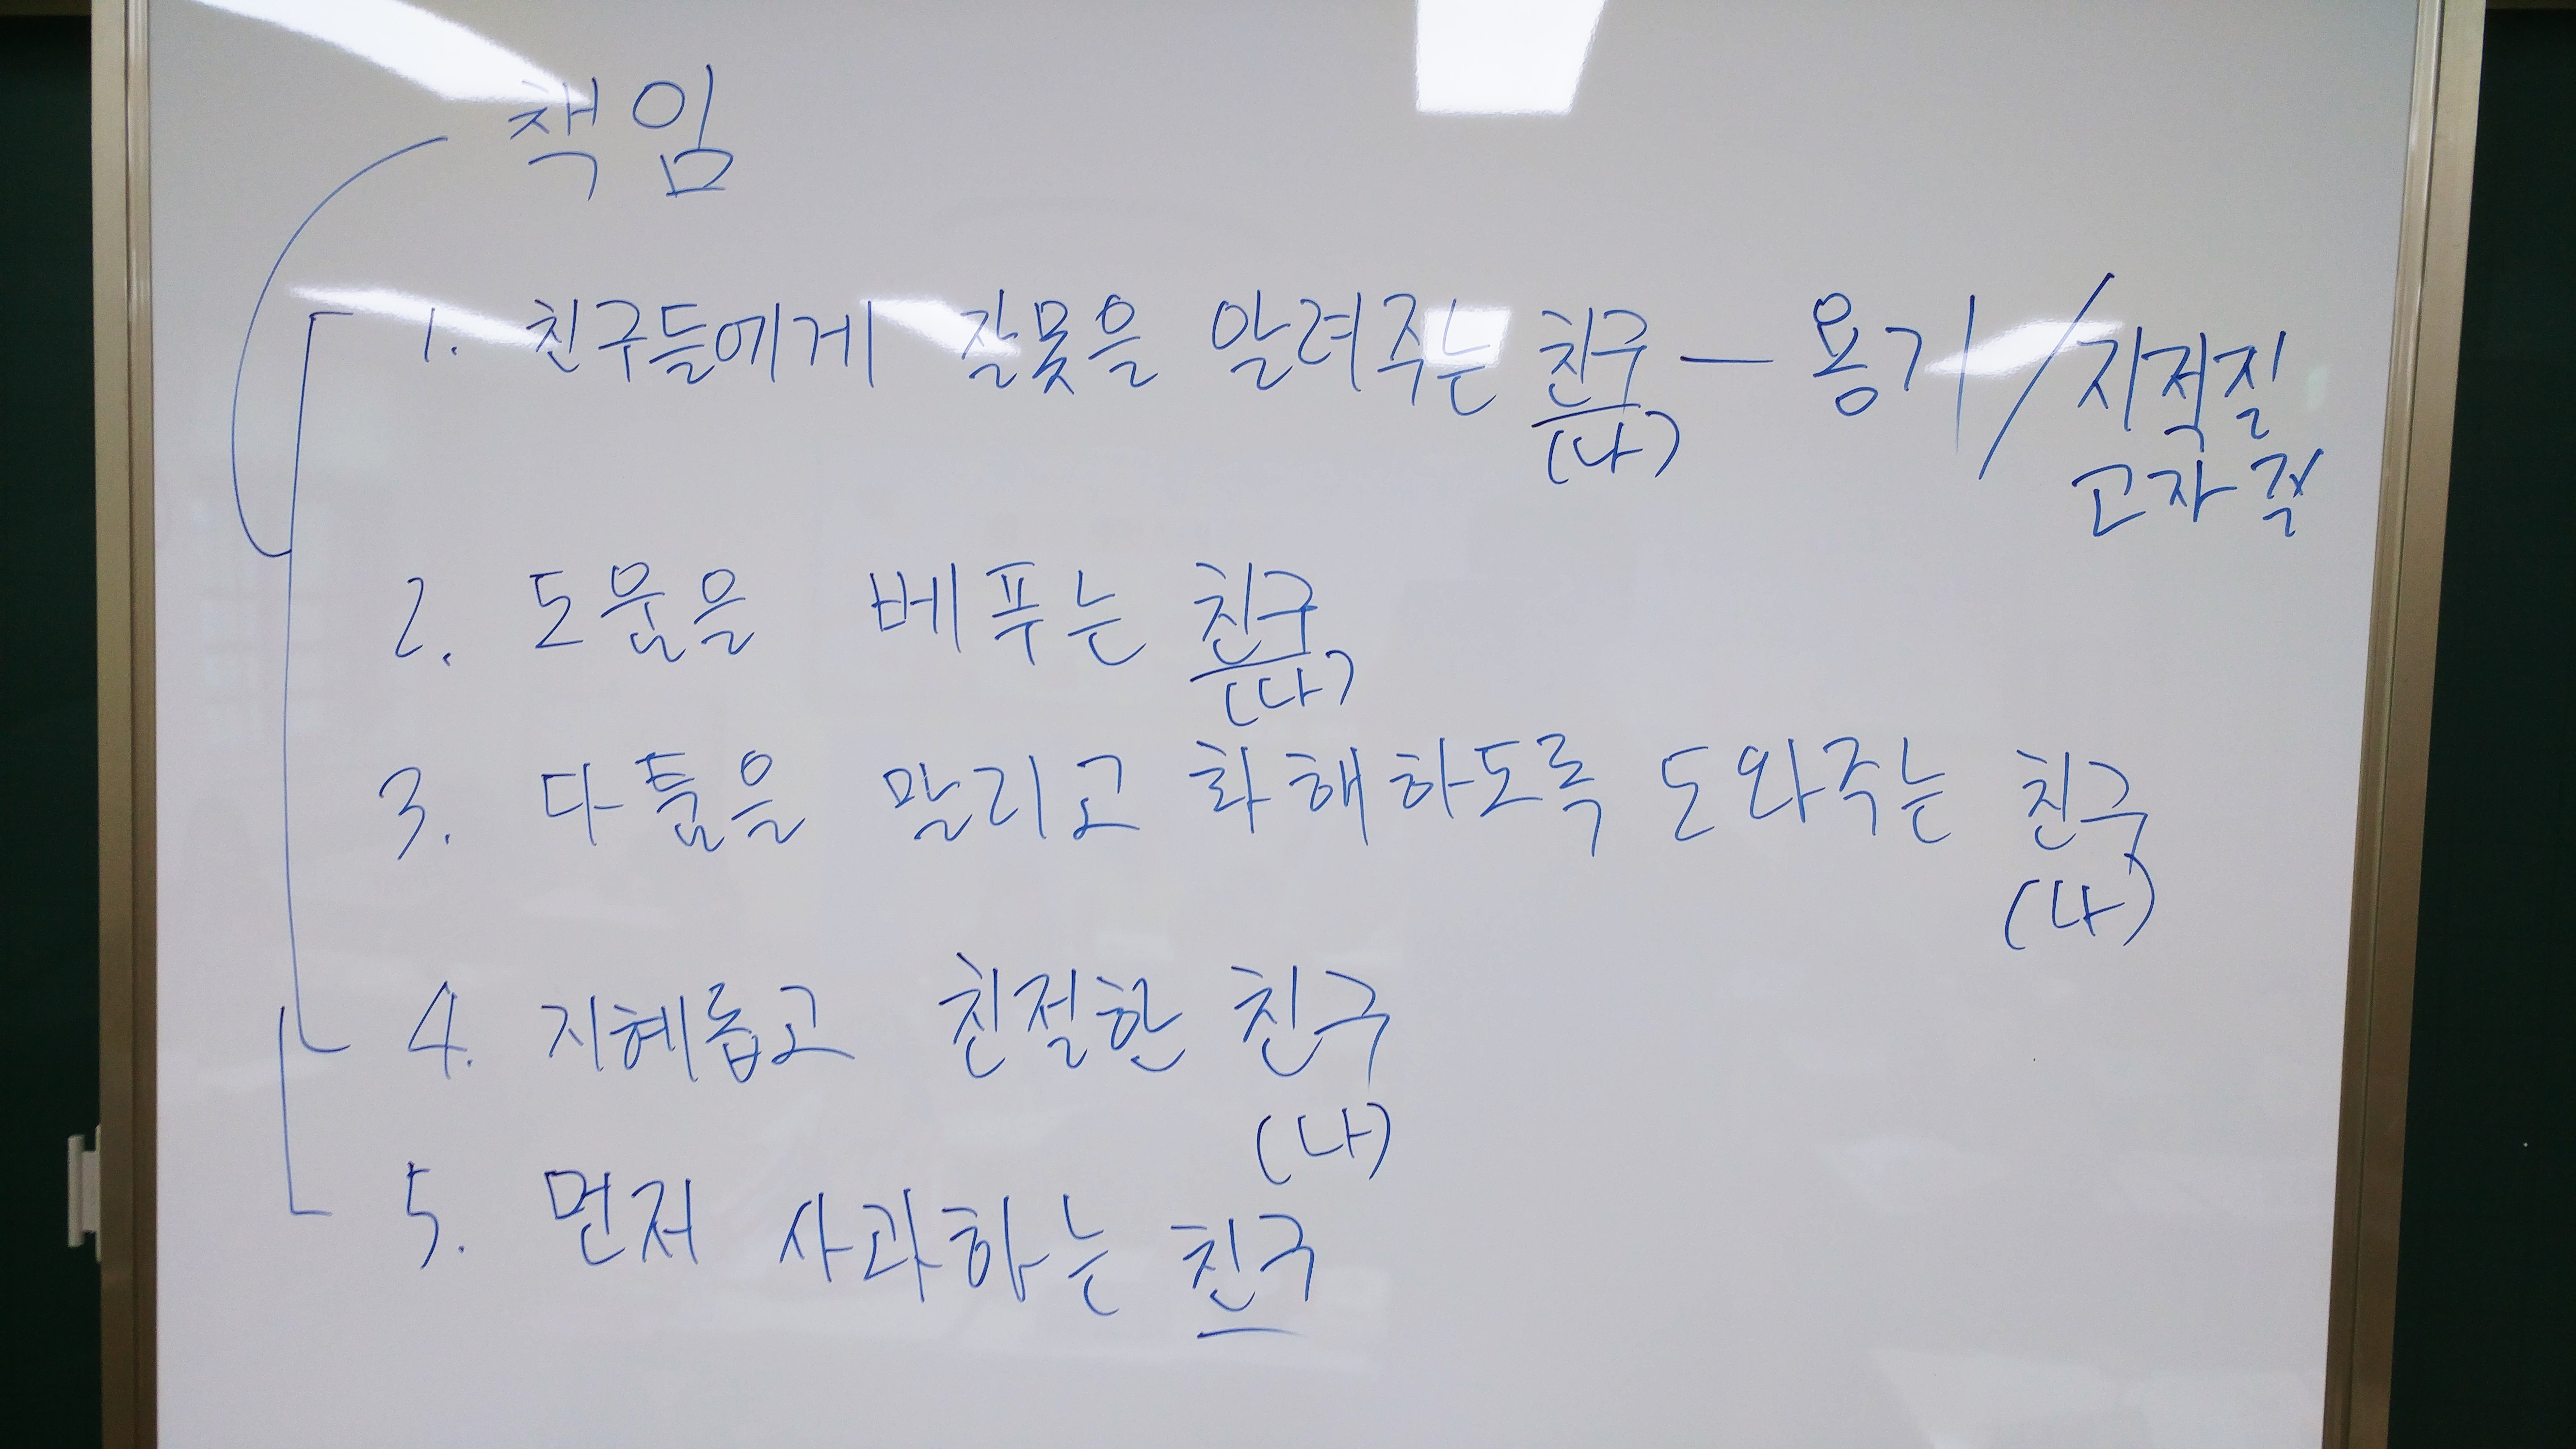 책임
1. 친구들에게 잘못을 알려주는 친구 — 용기 / 지적질
(나)
고자질
2. 도움을 베푸는 친구
(나)
3. 다툼을 말리고 화해하도록 도와주는 친구
(나)
4. 지혜롭고 친절한 친구
(나)
5. 먼저 사과하는 친구